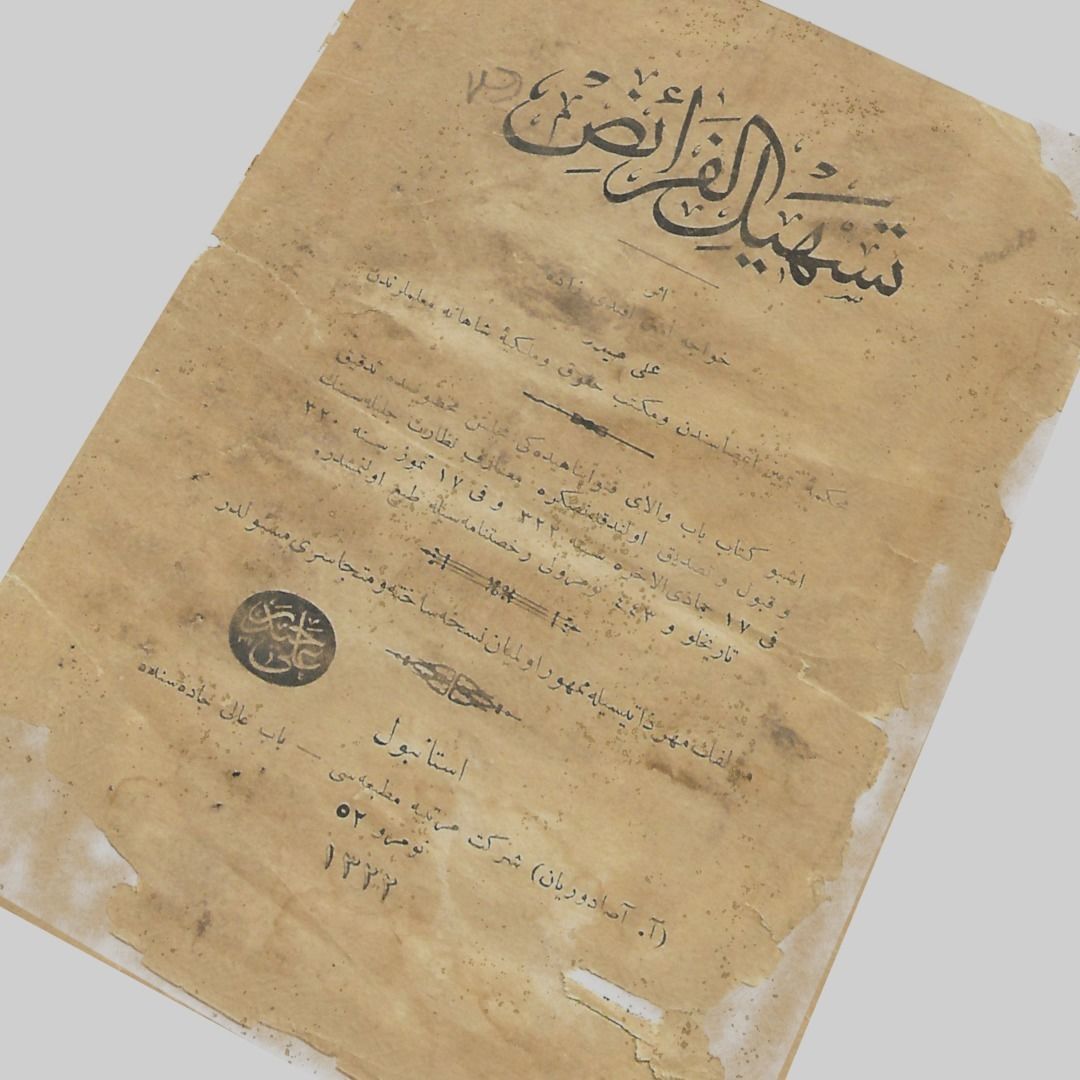 تسهيل الفرائض
اثر
خواجه امين افندى زاده
على حيدر
محكمۀ تميز اعضاسندن ومكتب حقوق وملكيۀ شاهانه معلملرندن
اشبو كتاب باب والاى فتواپناهيده كى مجلس مخصوصنده تدقيق
و قبول و تصديق اولندقدنصكره معارف نظارت جليله سينك
فى ١٧ جماذى الاخره سنه ٣٢٢ و فى ١٧ تموز سنه ٣٢٠
تاريخلو و ٤٤٣ نومرولى رخصتنامه سيله طبع اولنمشدر
مؤلفك مهر ذاتيسيله ممهور اولميان نسخه ساخته و متجاسرى مسئولدر
على حيدر
استانبول
(آ. آصادوريان) شركت مرتبيه مطبعه سى — باب عالى جاده سنده
نومرو ٥٢
١٣٢٢